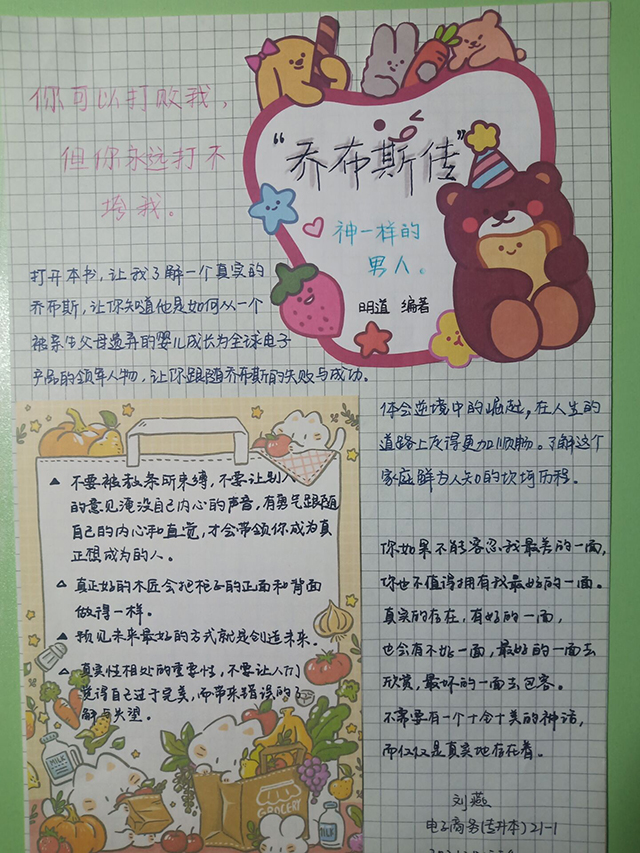 你可以打败我，
但你永远打不
垮我。
“乔布斯传”
神一样的
男人。
明道 编著
打开本书，让我了解一个真实的
乔布斯，让你知道他是如何从一个
被亲生父母遗弃的婴儿成长为全球电子
产品的领军人物，让你跟随乔布斯的失败与成功。
体会逆境中的崛起，在人生的
道路上变得更加顺畅。了解这个
家庭鲜为人知的坎坷历程。
不要被教条所束缚，不要让别人
的意见淹没自己内心的声音，有勇气跟随
自己的内心和直觉，才会带领你成为真
正想成为的人。
真正好的木匠会把柜子的正面和背面
做得一样。
预见未来最好的方式就是创造未来。
真实性相处的重要性，不要让人们
觉得自己过于完美，而带来错误的了
解与失望。
你如果不能容忍我最差的一面，
你也不值得拥有我最好的一面。
真实的存在，有好的一面，
也会有不好一面，最好的一面去
欣赏，最坏的一面去包容。
不需要有一个十全十美的神话，
而仅仅是真实地存在着。
MILK
GROCERY
MILK
刘燕
电子商务(专升本)21-1